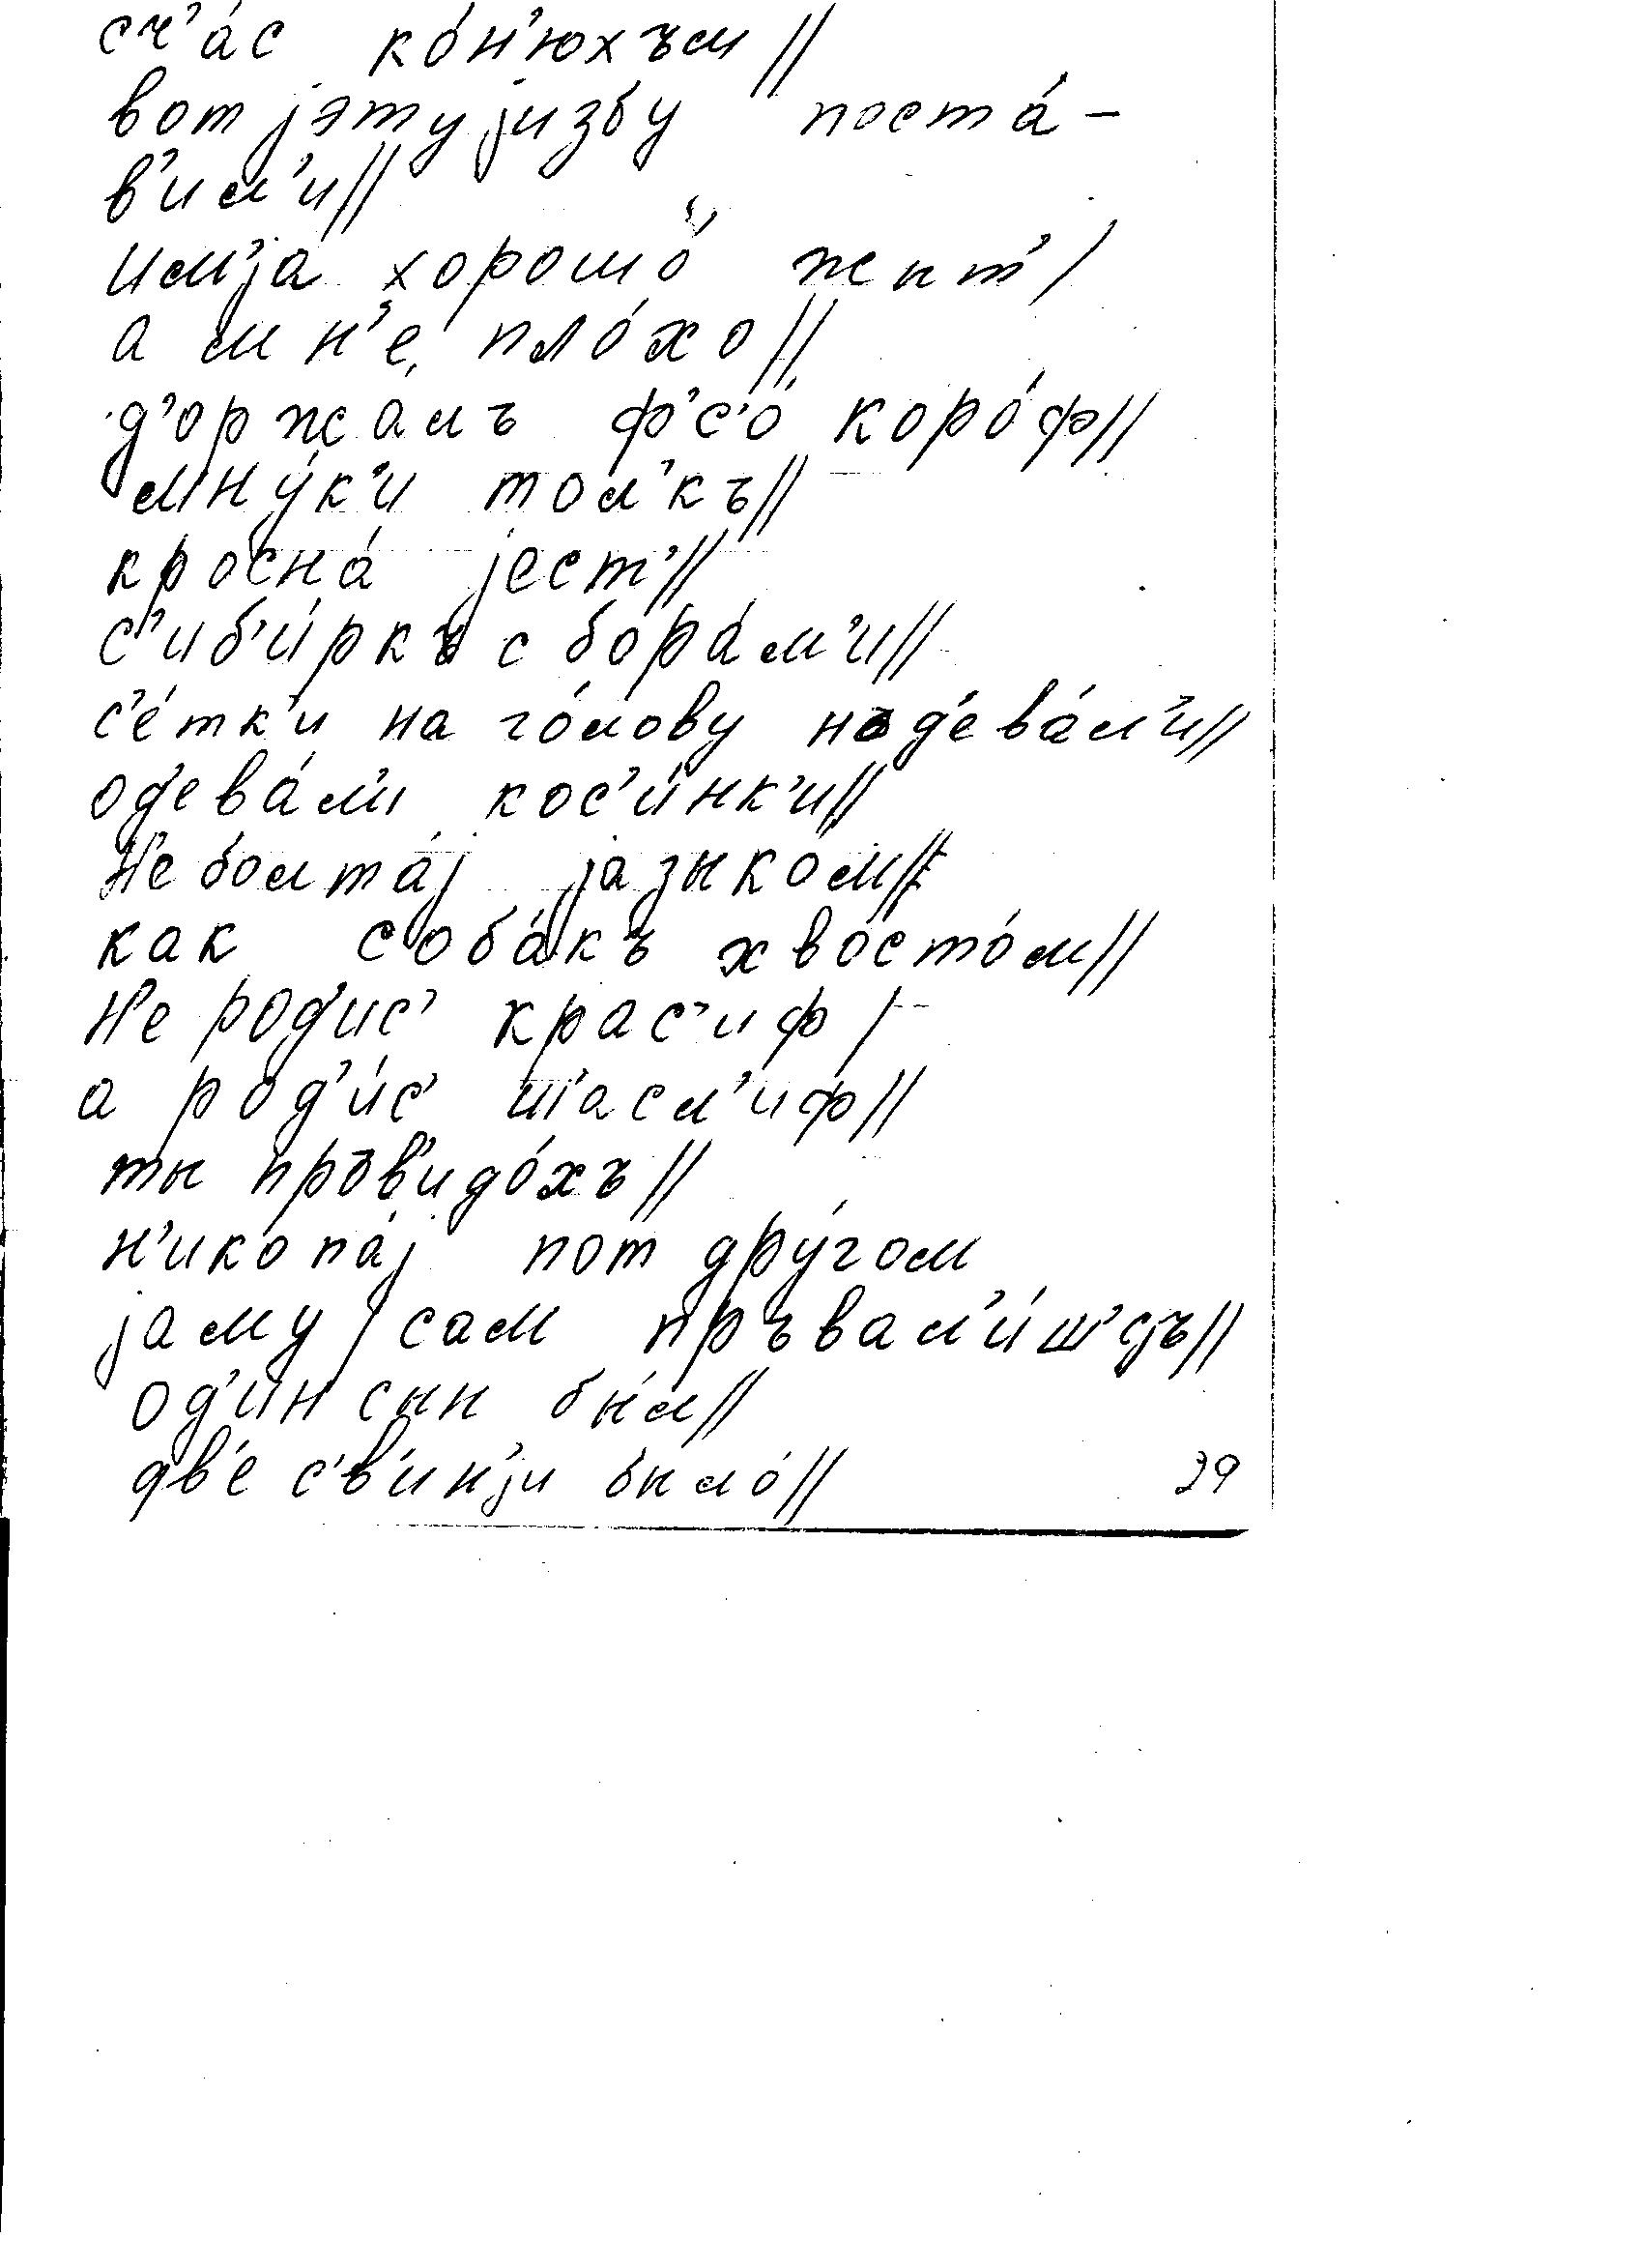 сч'а́с ко́н'юхъм//
вот jэту jизбу поста́-
в'ил'и//
им'jа хорошо́ жыт'/
а мн'е́ пло́хо//
д'оржа́лъ ф'с'о́ коро́ф//
мну́к'и тол'къ//
кросна́ jест'//
с'иб'и́ркъ с бора́м'и//
с'е́тк'и на го́лову над'ева́л'и//
од'ева́л'и кос'и́нк'и//
н'е болта́j jазыко́м//
как соба́къ хвосто́м//
н'е род'ис' крас'иф /
а род'и́с' ш'асл'иф//
ты пръв'идо́хъ//
н'ико па́j пот дру́гом
jаму / сам пръвал'и́ш'сjъ//
од'ин сын бы́л//
дв'е с'в'ин'jи было́//
39